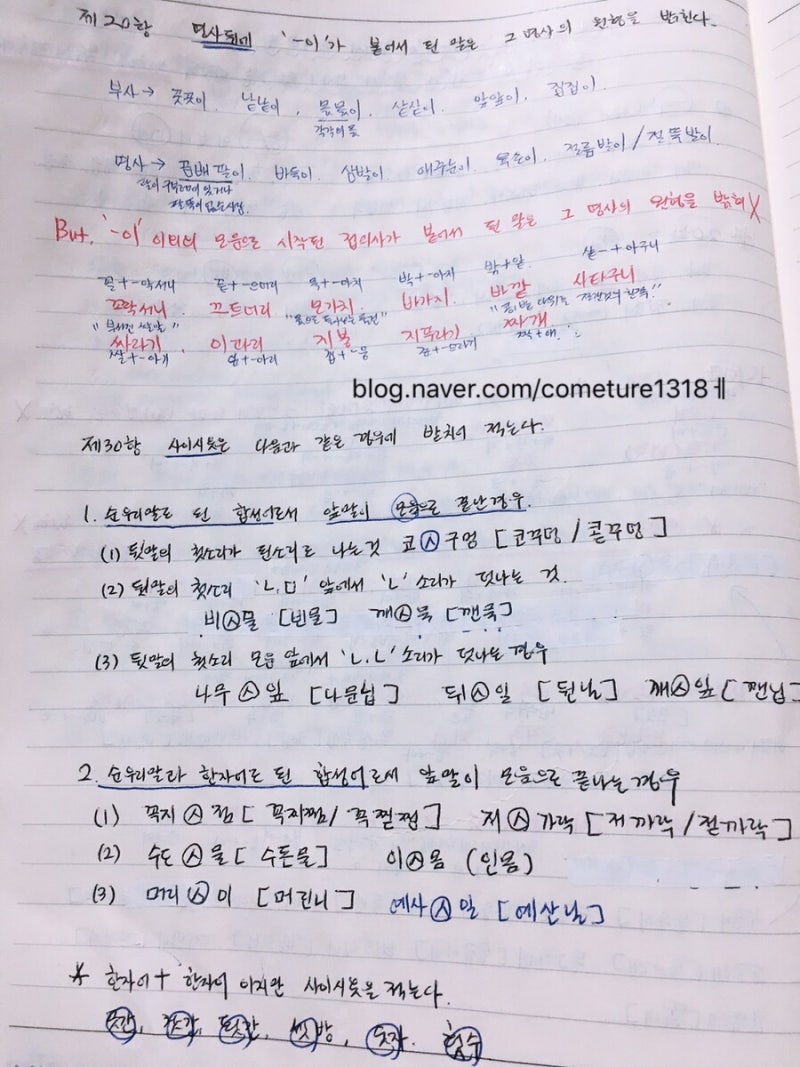 제20항 명사뒤에 '-이'가 붙어서 된 말은 그 명사의 원형을 밝힌다.
부사→ 곳곳이, 낱낱이, 몫몫이, 샅샅이, 앞앞이, 집집이.
각각의 몫
명사→ 곰배팔이, 바둑이, 삼발이, 애꾸눈이, 육손이, 절름발이/절뚝발이.
팔이 꼬부라져 있거나
팔뚝이 없는 사람.
But, '-이' 이외의 모음으로 시작된 접미사가 붙어서 된 말은 그 명사의 원형을 밝혀X
꼴+-악서니 끝+-으머리 목+-아치 박+-아지 밖+앝 샅-+아구니
꼬락서니 끄트머리 모가치 바가지 바깥 사타구니
"부서진 쌀알" "몫으로 돌아오는 물건"
싸라기 이파리 지붕 지푸라기 짜개
쌀+-아기 잎+-아리 집+-웅 짚+-으라기 짝+애
blog.naver.com/cometure1318ㅔ
제30항 사이시옷은 다음과 같은 경우에 받치어 적는다.
1. 순우리말로 된 합성어로서 앞말이 모음으로 끝난경우.
(1) 뒷말의 첫소리가 된소리로 나는 것 코ㅅ구멍 [코꾸멍 / 콛꾸멍]
(2) 뒷말의 첫소리 'ㄴ,ㅁ' 앞에서 'ㄴ' 소리가 덧나는 것.
비ㅅ물 [빈물] 깨ㅅ묵 [깬묵]
(3) 뒷말의 첫소리 모음 앞에서 'ㄴ,ㄴ' 소리가 덧나는 경우
나무ㅅ잎 [나문닙] 뒤ㅅ일 [뒨닐] 깨ㅅ잎 [깬닙]
2. 순우리말과 한자어로 된 합성어로서 앞말이 모음으로 끝나는 경우
(1) 꼭지ㅅ점 [꼭지쩜/ 꼭찓쩜] 저ㅅ가락 [저까락 / 젇까락]
(2) 수도ㅅ물 [수돈물] 이ㅅ몸 (인몸)
(3) 머리ㅅ이 [머린니] 예사ㅅ일 [예산닐]
* 한자어+ 한자어 이지만 사이시옷을 적는다.
곳간, 찻간, 툇간, 셋방, 숫자, 횟수